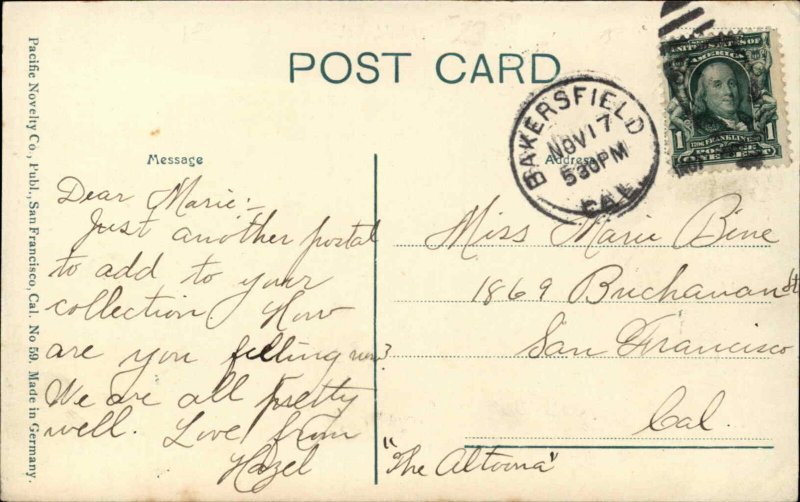 POST CARD
Pacific Novelty Co., Publ., San Francisco, Cal. No 59. Made in Germany.
Message
Dear Marie:-
Just another postal
to add to your
collection How
are you feelling now?
We are all pretty
well. Love from
Hazel
Address
BAKERSFIELD
NOV 17
530PM
CAL.
UNITED STATES OF
AMERICA
1 1
FRANKLIN
Miss Marie Bine
1869 Buchanan St
San Francisco
Cal.
"The Altoona"